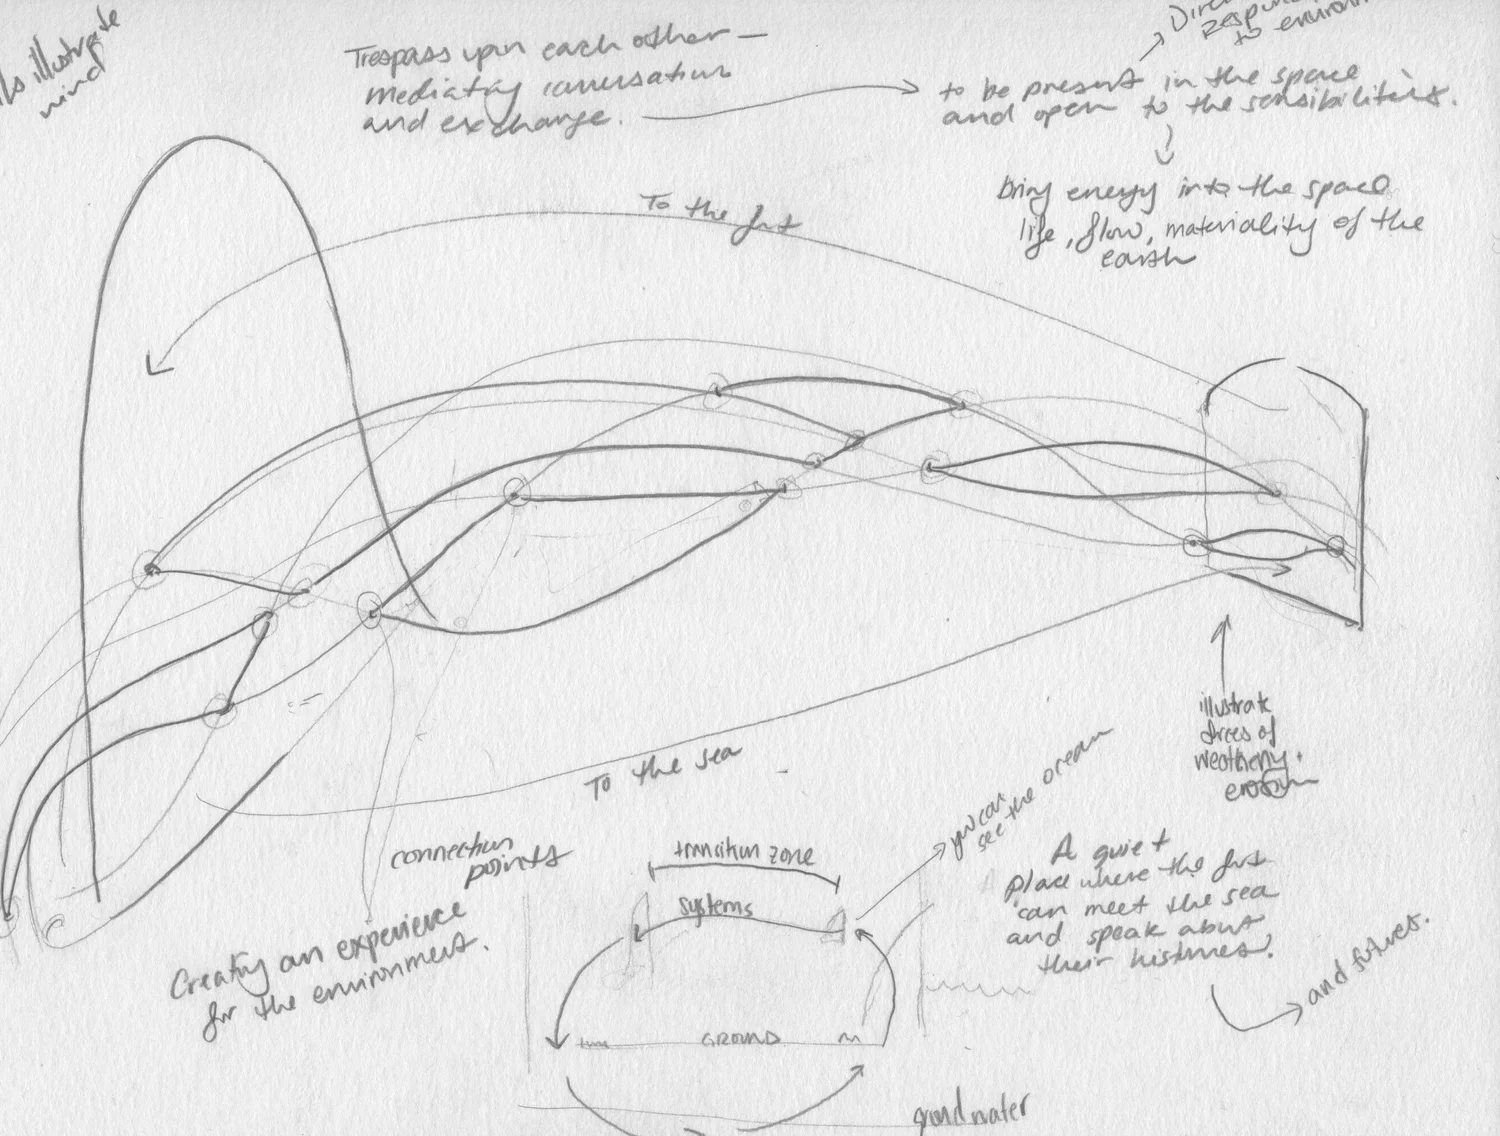 illustrate
wind
Trespass upon each other —
mediating conversation
and exchange.
to be present in the space
and open to the sensibilities.
to
bring energy into the space
life, flow, materiality of the
earth
To the fort
To the sea
illustrate
forces of
weathering.
erosion
connection
points
Creating an experience
for the environment.
transition zone
systems
GROUND
groundwater
you can
see the ocean
A quiet
place where the fort
can meet the sea
and speak about
their histories.
and futures.